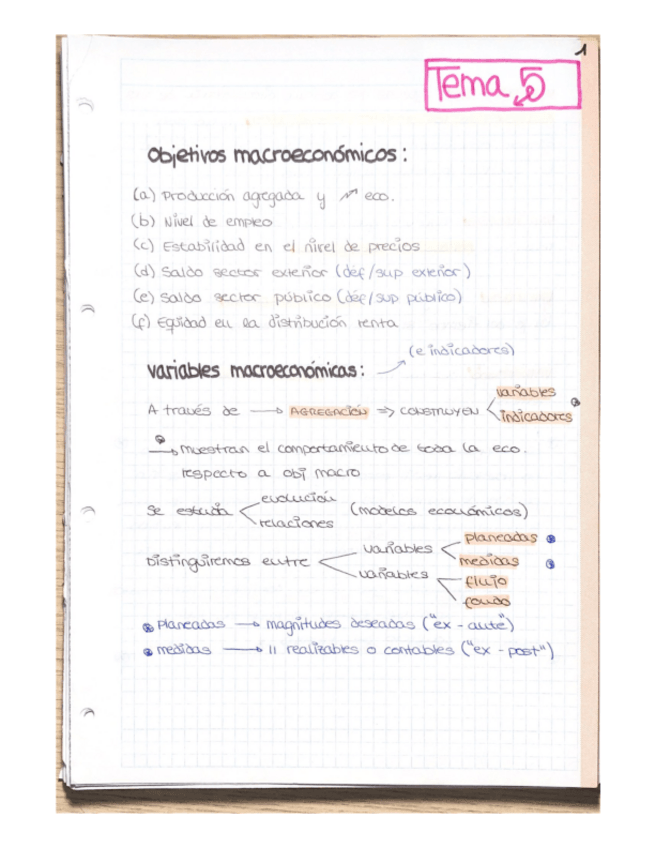 1
Tema 5
Objetivos macroeconómicos:
(a) Producción agregada y ↗ eco.
(b) Nivel de empleo
(c) Estabilidad en el nivel de precios
(d) Saldo sector exterior (def/sup exterior)
(e) Saldo sector público (def/sup público)
(f) Equidad en la distribución renta
(e indicadores)
variables macroeconómicas:
A través de → AGREGACIÓN ⇒ CONSTRUYEN
variables
indicadores
→ muestran el comportamiento de toda la eco.
respecto a obj macro
Se estudia
evolución
relaciones
(modelos económicos)
Distinguiremos entre
variables
planeadas
medidas
variables
flujo
fondo
planeadas → magnitudes deseadas ("ex - ante")
medidas → 11 realizables o contables ("ex - post")